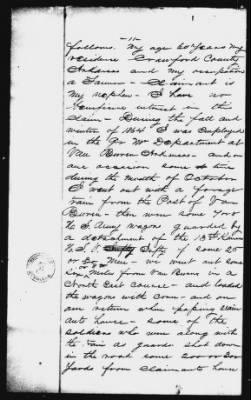 11
follows. My age 60 years my
residence Crawford County
Arkansas and my occupation
a Farmer — Claimant is
my nephew — I have no
beneficial interest in this
claim — During the fall and
winter of 1864 I was employed
in the Qr Mr Department at
Van Buren Arkansas — and on
one occasion some time
during the month of October
I went out with a forage
train from the Post of Van
Buren — there were some 7 or 8
U. S. Army wagons guarded by
a detachment of the 13th
some 25
or 30 Men — we went out some
Miles from Van Buren in a
North East course — and loaded
the wagons with corn — and on
our return when passing claim
ants house — some of the
soldiers who were along with
the train as guards shot down
in the road some 200 or 300
yards from claimants house